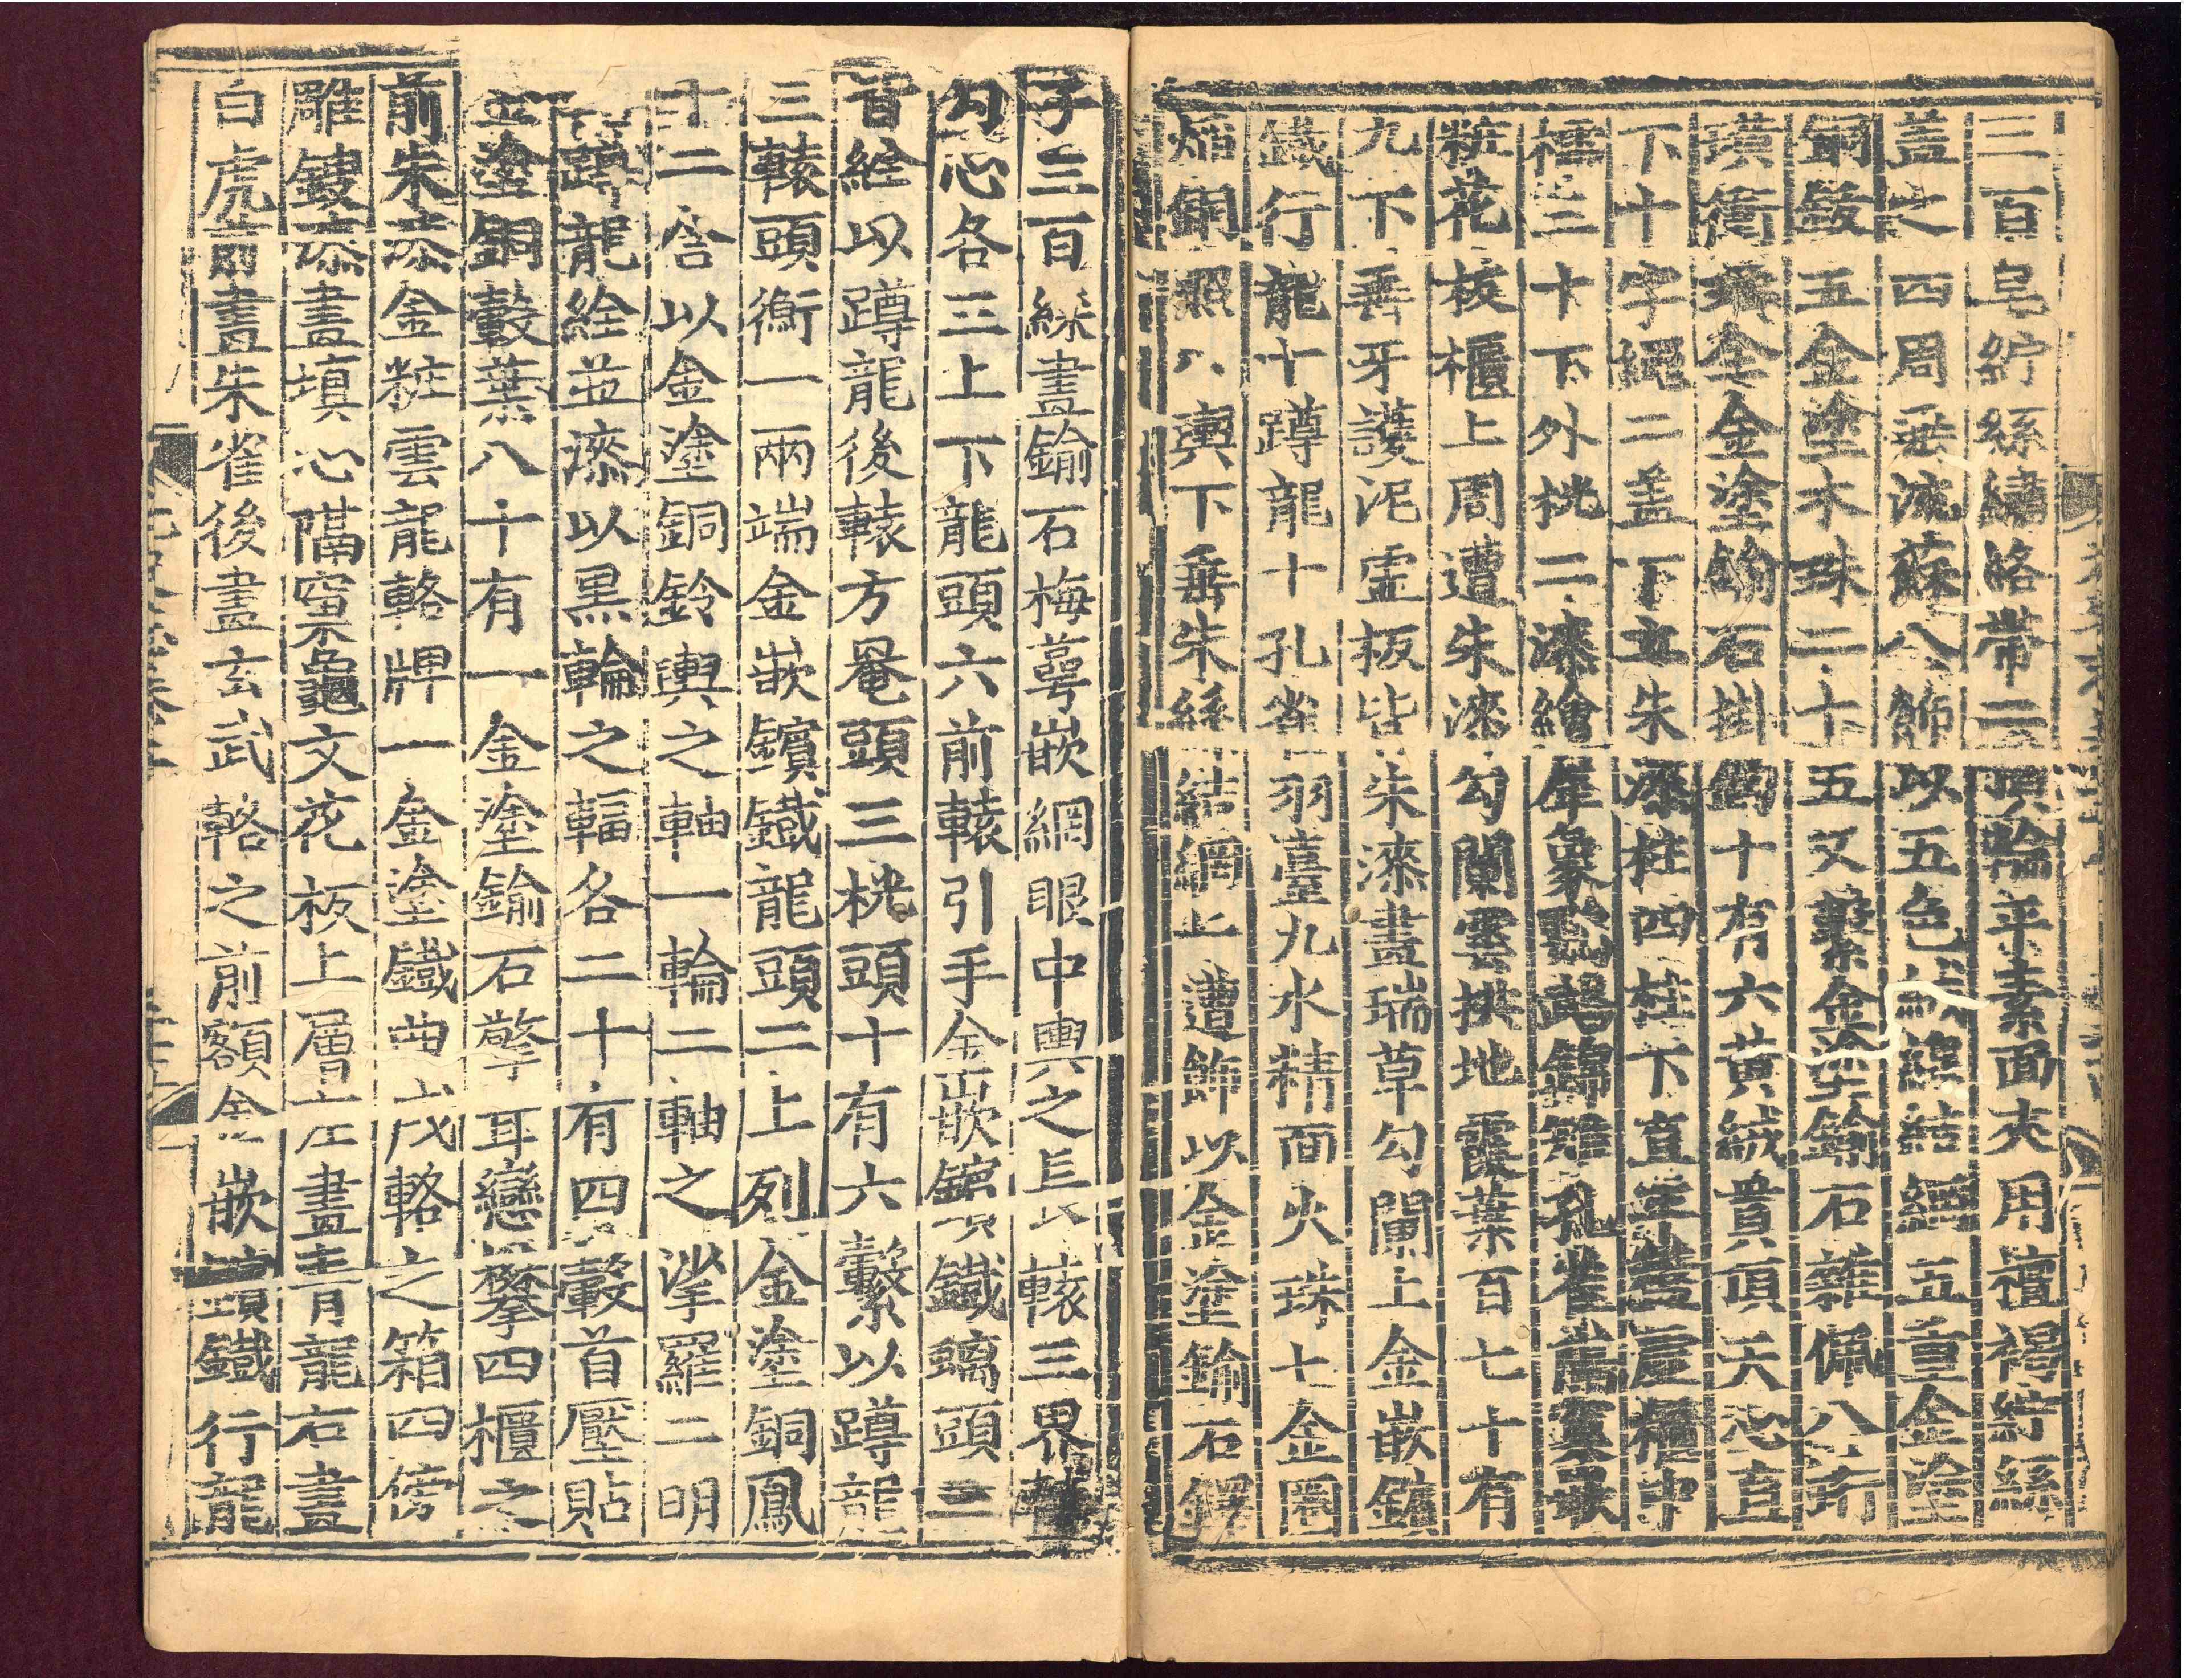 三百皂紵絲繡絡帶二頂輪平素面夾用襢褐紵絲
蓋之四周垂流蘇八飾以五色絨線結網五重金塗
銅鈸五金塗木珠二十五又繫金塗鍮石雜佩八珩
璜衝瑀全金塗鍮石掛鈎十有六黃絨貫頂天心直
下十字繩二蓋下立朱漆柱四柱下直平盤虛櫃中
檽三十下外桄二漆繪犀象鸞鶴錦雉孔雀隔窠嵌
粧花板櫃上周遭朱漆勾闌雲拱地霞葉百七十有
九下垂牙護泥虛板皆朱漆畫瑞草勾闌上金嵌鑌
鐵行龍十蹲龍十孔雀羽臺九水精面火珠七金圈
焰銅照八輿下垂朱絲結網上遭飾以金塗鍮石鐸
子三百綵畫鍮石梅萼嵌網眼中輿之長轅三界轅
勾心各三上下龍頭六前轅引手金嵌鑌鐵螭頭三
皆絟以蹲龍後轅方罨頭三桄頭十有六繫以蹲龍
三轅頭衡一兩端金嵌鑌鐵龍頭二上列金塗銅鳳
十二含以金塗銅鈴輿之軸一輪二軸之挲羅二明
蹲龍絟並漆以黑輪之輻各二十有四轂首壓貼
金塗銅轂葉八十有一金塗鍮石擎耳戀攀四櫃之
前朱漆金粧雲龍輅牌一金塗鐵曲戌輅之箱四傍
雕鏤漆畫填心隔窠龜文花板上層左畫青龍右畫
白虎前畫朱雀後畫玄武輅之前額金嵌鑌鐵行龍